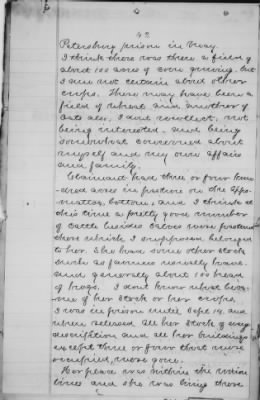 43
Petersburg prison in May.
I think there was there a field of
about 100 acres of corn growing, but
I am not certain about other
crops. There may have been a
field of wheat and another of
oats also, I dont recollect, not
being interested, and being
somewhat concerned about
myself and my own affairs
and family.
Claimant had three or four hun-
dred acres in pasture on the Appo-
mattox, bottom, and I think at
this time a pretty good number
of cattle besides calves were pastured
there which I supposed belonged
to her. She had some other stock
such as farmers usually have
and generally about 100 head
of hogs. I dont know what beca-
me of her stock or her crops.
I was in prison until Sept 14. and
when released all her stock of every
description and all her buildings
except three or four that were
occupied, were gone.
Her place was within the union
lines and she was living there